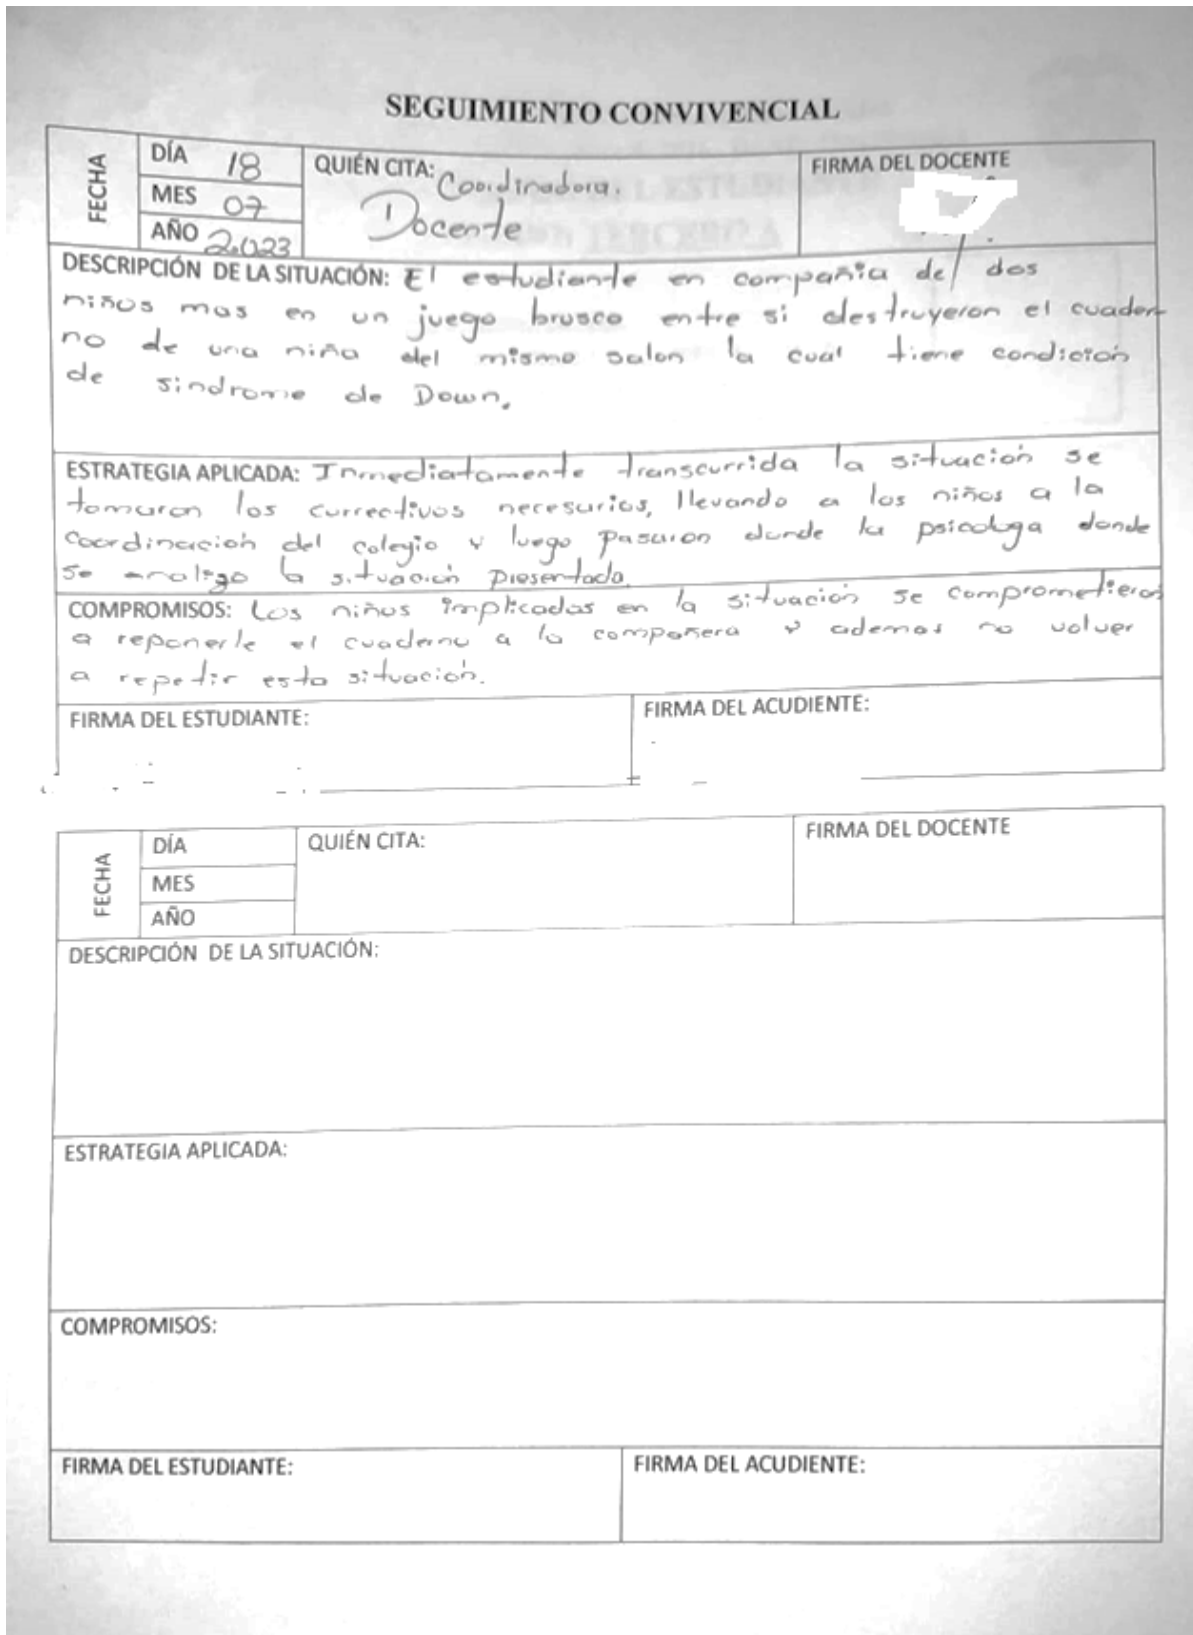 SEGUIMIENTO CONVIVENCIAL
FECHA
DÍA 18
MES 07
AÑO 2.023
QUIÉN CITA: Coordinadora.
Docente
FIRMA DEL DOCENTE
DESCRIPCIÓN DE LA SITUACIÓN: El estudiante en compañia de dos
niños mas en un juego brusco entre si destruyeron el cuader
no de una niña del mismo salon la cual tiene condición
de sindrome de Down.
ESTRATEGIA APLICADA: Inmediatamente transcurrida la situación se
tomaron los currectivos necesarios, llevando a los niños a la
Coordinación del colegio y luego pasaron donde la psicologa donde
se analizo la situación presentada.
COMPROMISOS: Los niños implicados en la situación se comprometieron
a reponerle el cuaderno a la compañera y ademas no volver
a repetir esta situación.
FIRMA DEL ESTUDIANTE:
FIRMA DEL ACUDIENTE:
FECHA
DÍA
MES
AÑO
QUIÉN CITA:
FIRMA DEL DOCENTE
DESCRIPCIÓN DE LA SITUACIÓN:
ESTRATEGIA APLICADA:
COMPROMISOS:
FIRMA DEL ESTUDIANTE:
FIRMA DEL ACUDIENTE: